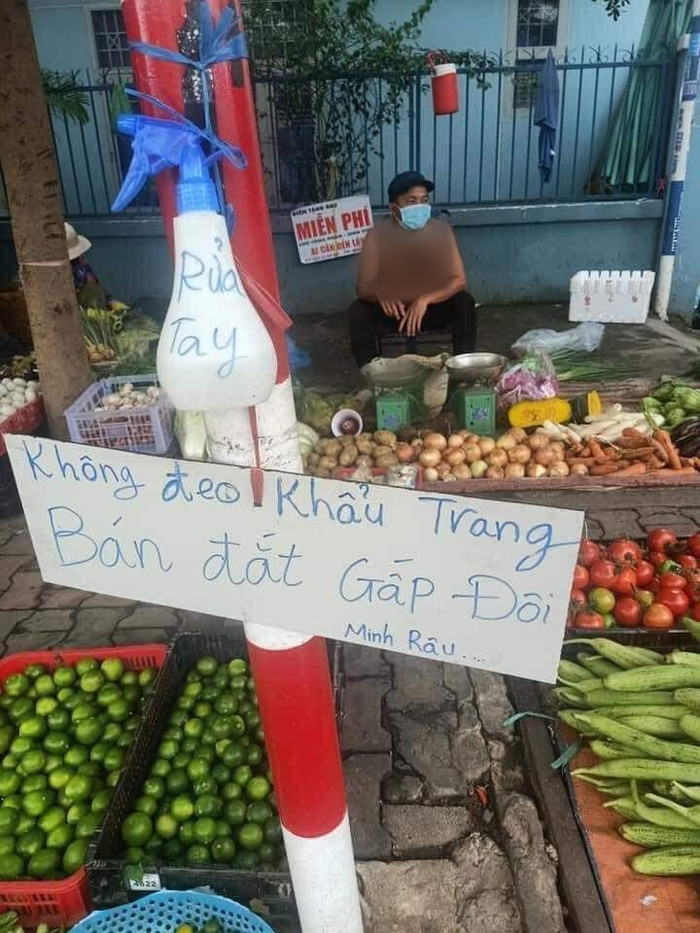 ĐIỂM TẶNG RAU
MIỄN PHÍ
AI CẦN ĐẾN LẤY
Rửa
Tay
Không đeo Khẩu Trang
Bán đắt Gấp Đôi
Minh Râu...
4622